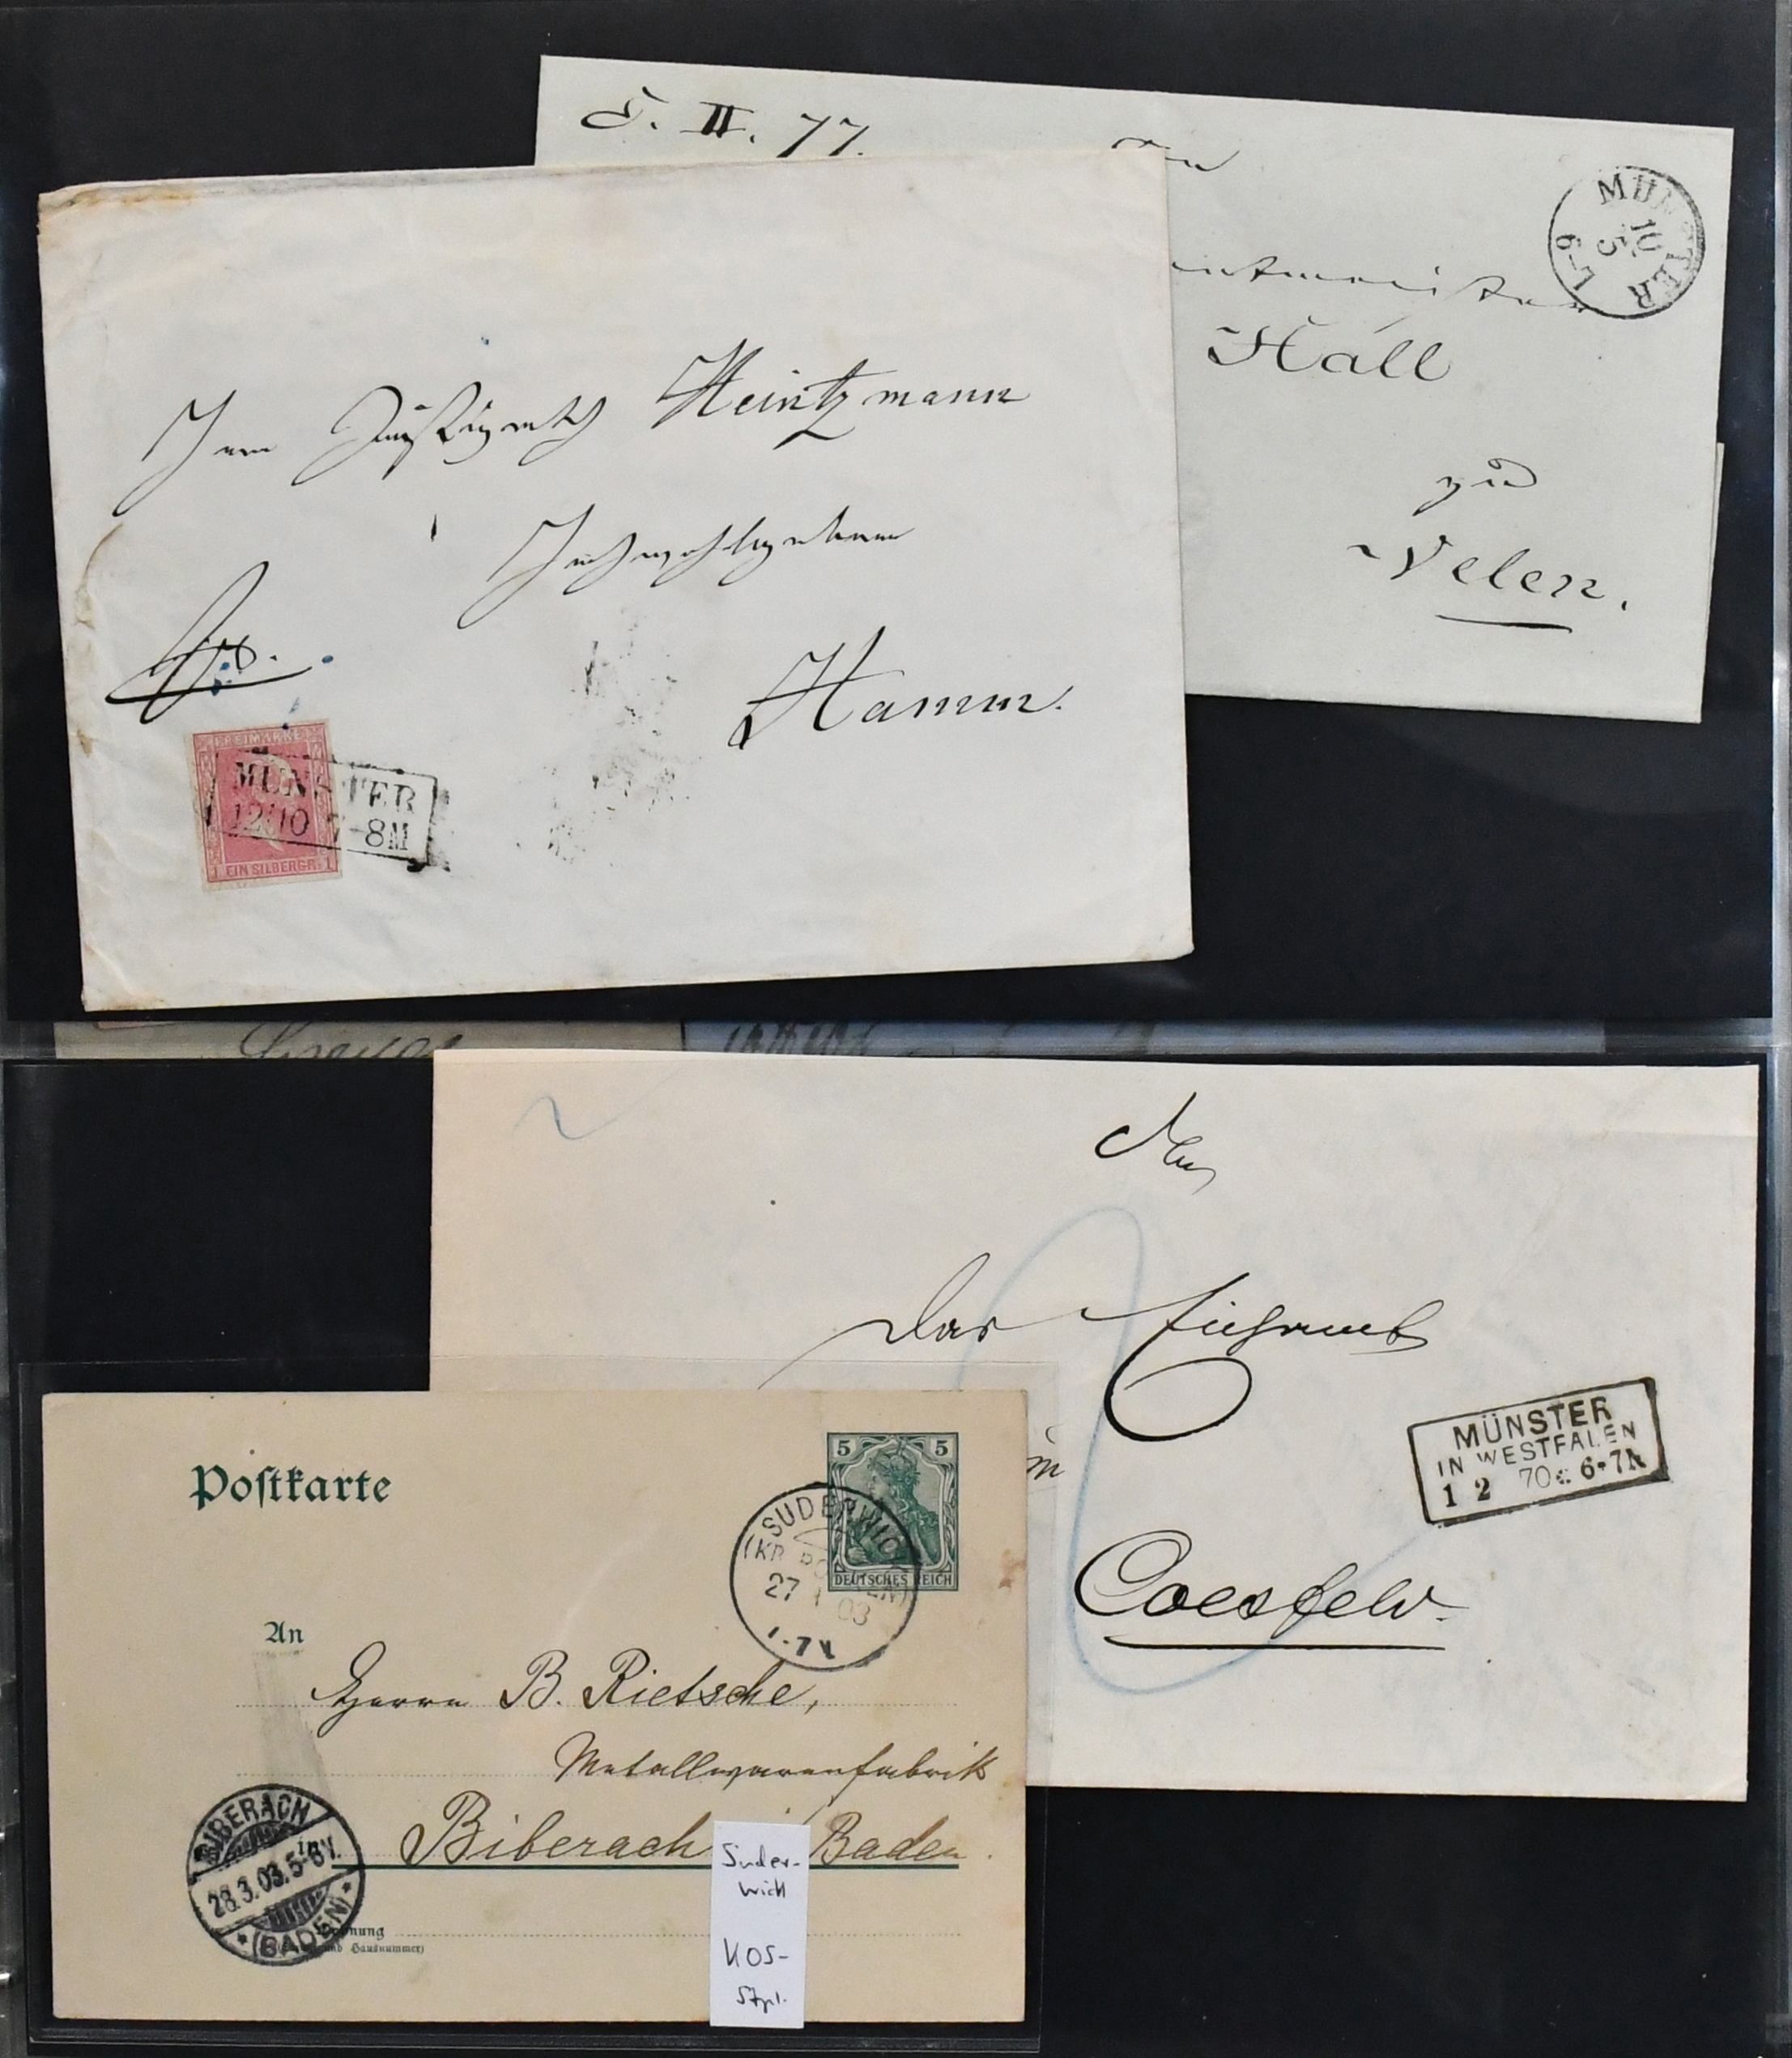 E. II. 77.
An
Háll
zu
Velen.
MÜNSTER
10
5
6-7
Herrn Justizrath Heintzmann
Hochwohlgeboren
Hamm.
FREIMARKE
1 EIN SILBERGR. 1
MÜNSTER
12 10 7-8M
An
Das Aichamt
in
Coesfeld.
MÜNSTER
IN WESTFALEN
1 2 70 6-7N
Postkarte
5 5
DEUTSCHES REICH
SUDERWICK
(KR. BORKEN)
27 03
An
Herrn B. Rietsche,
Metallwarenfabrik
Biberach Baden.
BIBERACH
28.3.03.5-6V.
(BADEN)
Hausnummer)
Suder-
wich
KOS-
Stpl.